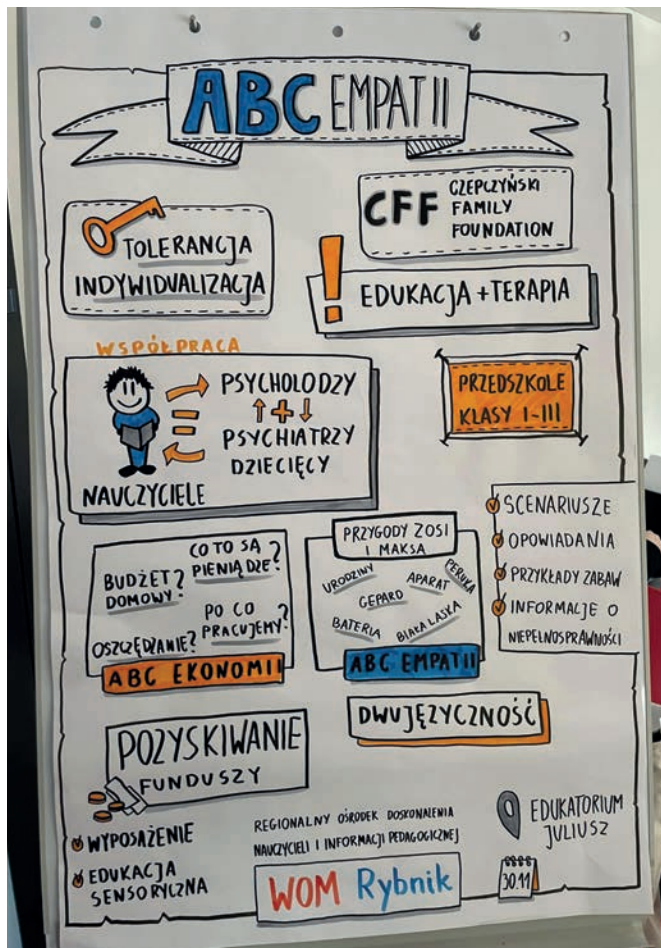 ABC EMPATII
TOLERANCJA
INDYWIDUALIZACJA
CFF CZEPCZYŃSKI
FAMILY
FOUNDATION
! EDUKACJA + TERAPIA
WSPÓŁPRACA
PSYCHOLODZY
+
PSYCHIATRZY
DZIECIĘCY
NAUCZYCIELE
PRZEDSZKOLE
KLASY I-III
CO TO SĄ
PIENIĄDZE?
BUDŻET
DOMOWY?
PO CO
PRACUJEMY?
OSZCZĘDZANIE?
ABC EKONOMII
PRZYGODY ZOSI
I MAKSA
URODZINY
APARAT
PERUKA
GEPARD
BATERIA
BIAŁA LASKA
ABC EMPATII
SCENARIUSZE
OPOWIADANIA
PRZYKŁADY ZABAW
INFORMACJE O
NIEPEŁNOSPRAWNOŚCI
DWUJĘZYCZNOŚĆ
POZYSKIWANIE
FUNDUSZY
WYPOSAŻENIE
EDUKACJA
SENSORYCZNA
REGIONALNY OŚRODEK DOSKONALENIA
NAUCZYCIELI I INFORMACJI PEDAGOGICZNEJ
WOM Rybnik
EDUKATORIUM
JULIUSZ
30.11